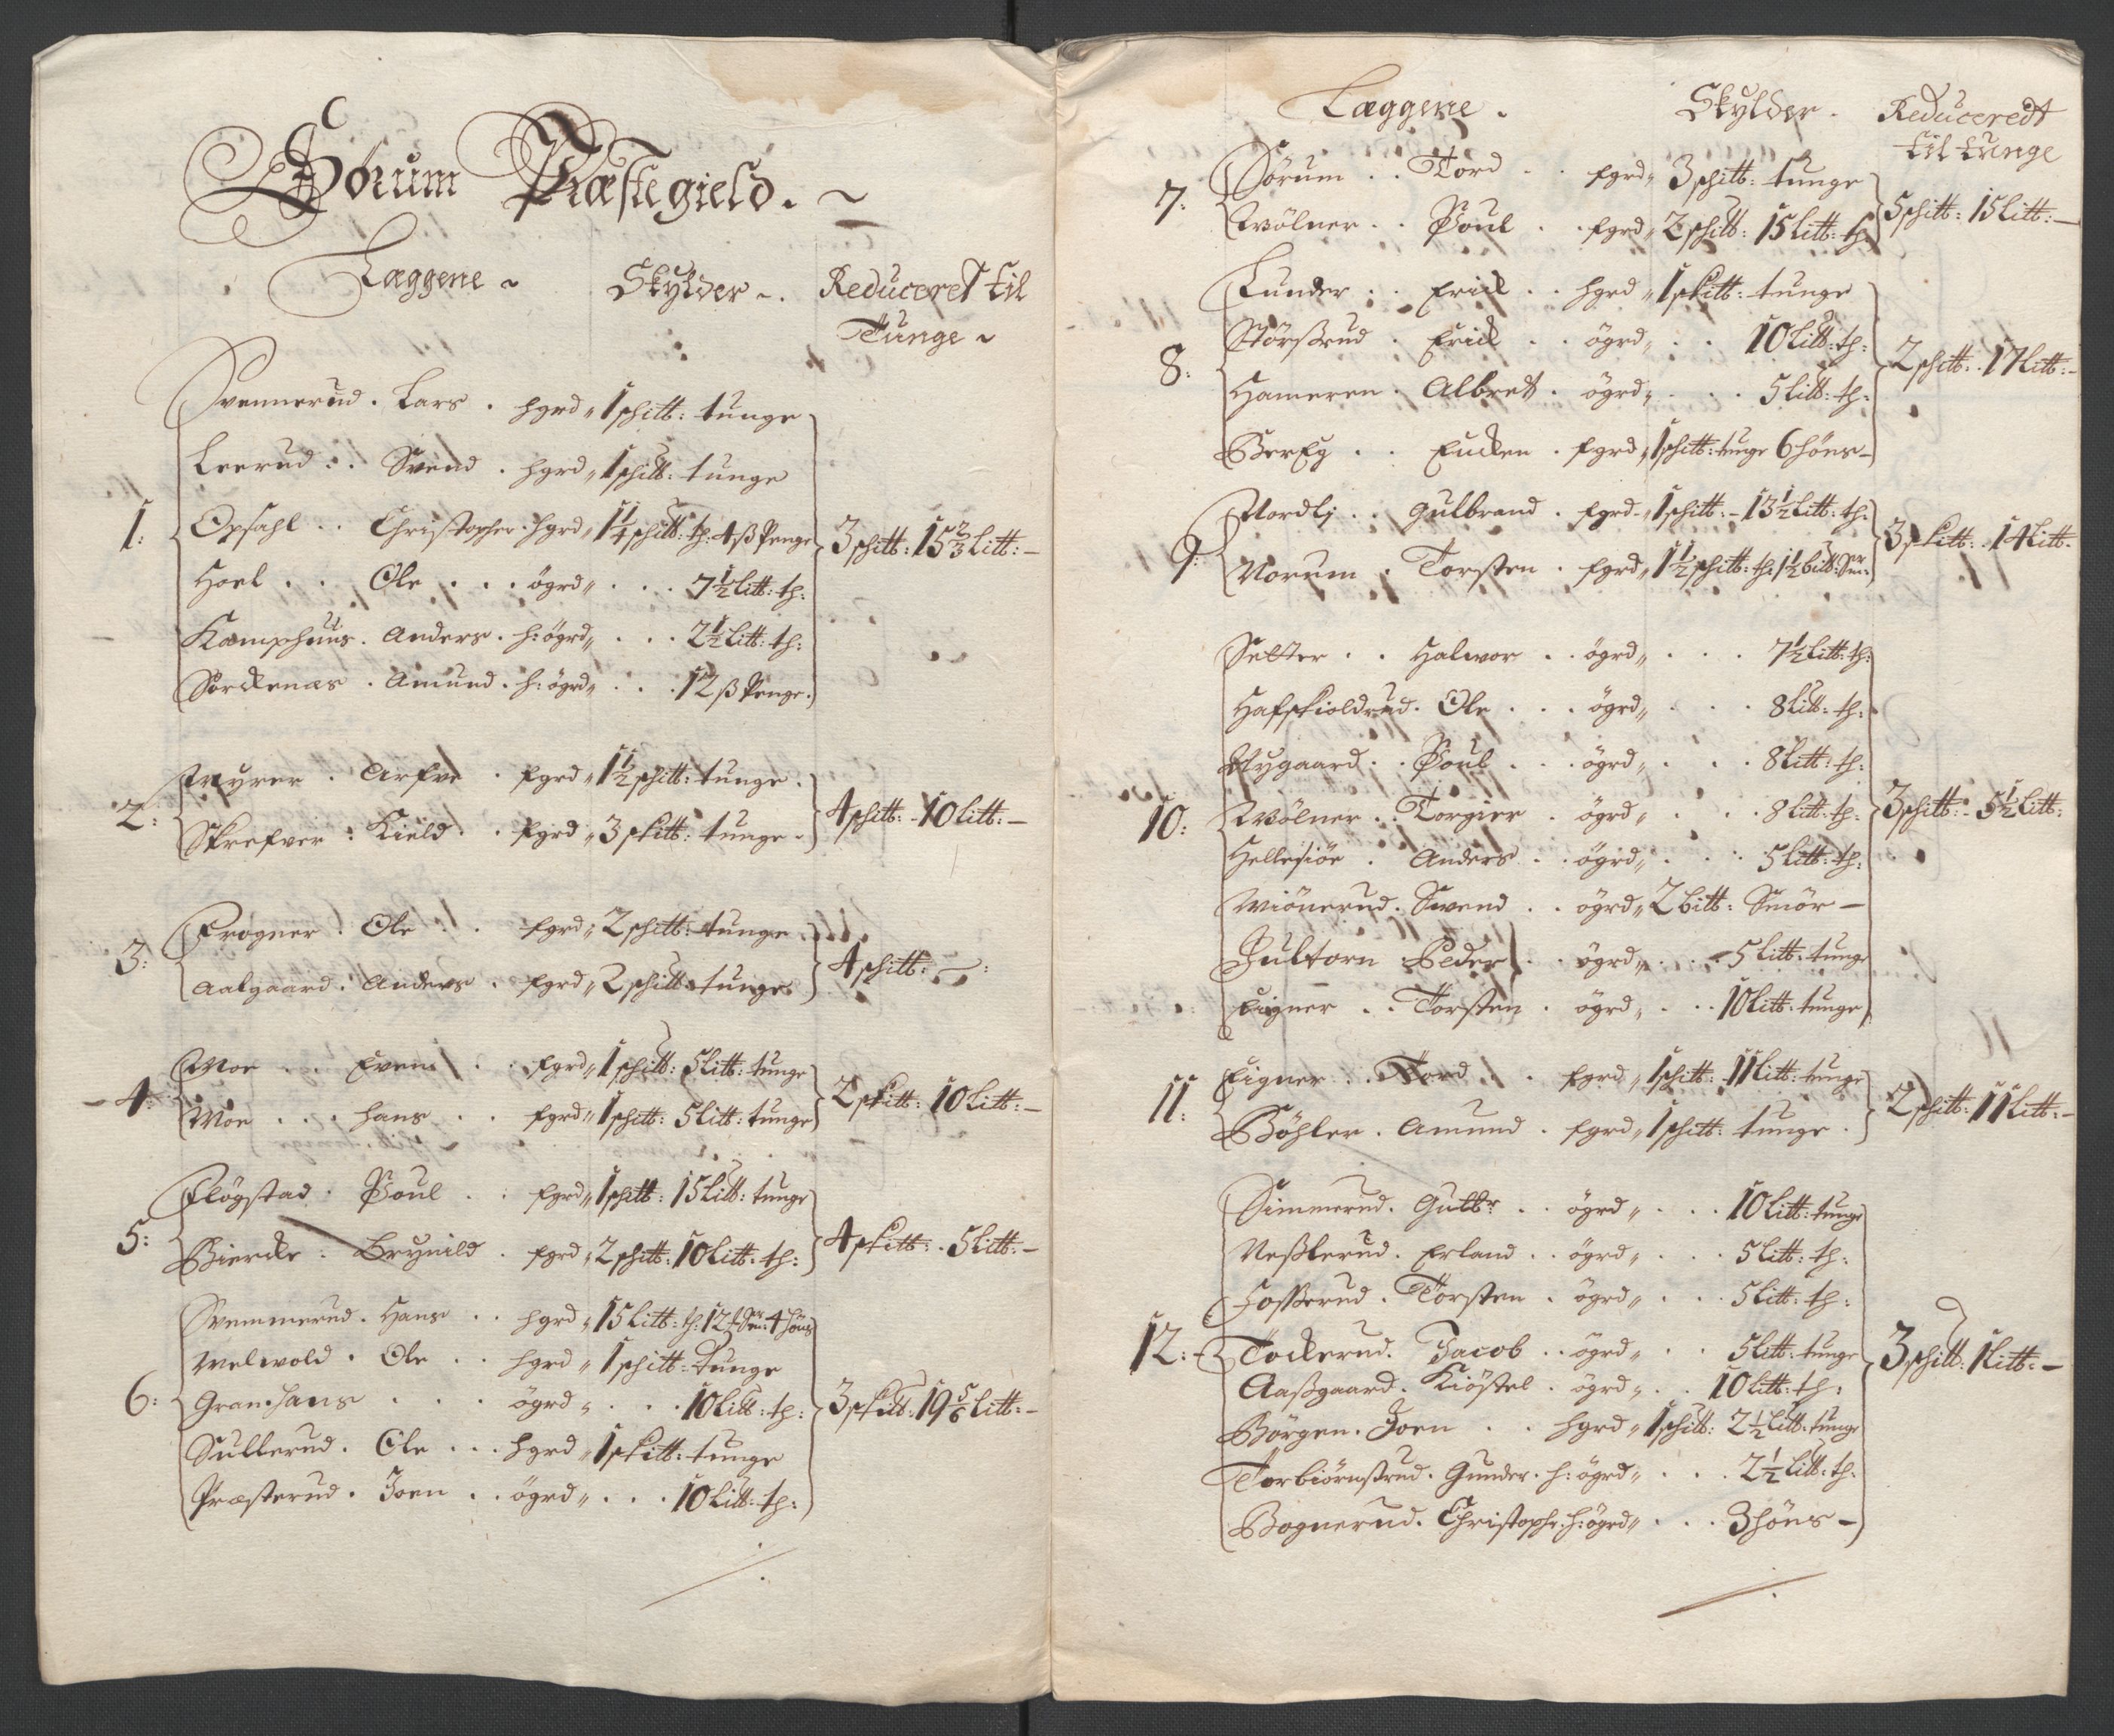 Sörum Præstegield.
Læggene Skylder Reduceret til
Tunge
1:
Svennerud. Lars. hgrd 1 schitt: tunge
Leerud. Svend. hgrd 1 schitt: tunge
Opsahl.. Christopher. hgrd 1¼ schitt: th: 4 ß Penge
Hoel.. Ole... ögrd... 7½ Litt: th:
Kamphuus. Anders. h: ögrd... 2½ Litt: th:
Sörckenæs. Amund. h: ögrd... 12 ß Penge.
3 schitt: 15⅔ Litt:
2:
Myrer. Arfve. fgrd 1½ schitt: tunge.
Skrefver. Kield. fgrd 3 schitt: tunge.
4 schitt: 10 Litt:
3:
Frogner. Ole.. fgrd 2 schitt: tunge
Aalgaard. Anders. fgrd 2 schitt: tunge
4 schitt:
4:
Moe.. Even.. fgrd 1 schitt: 5 Litt: tunge
Moe... Hans.. fgrd 1 schitt: 5 Litt: tunge
2 schitt: 10 Litt:
5:
Fløgstad. Poul.. fgrd 1 schitt: 15 Litt: tunge
Biercke. Brynild. fgrd 2 schitt: 10 Litt: th:
4 schitt: 5 Litt:
6:
Svemmerud. Hans.. hgrd 15 Litt: th: 12 Smr: 4 höns
Melvold. Ole.. hgrd 1 schitt: tunge
Gran Hans... ögrd... 10 Litt: th:
Sullerud. Ole... hgrd 1 schitt: tunge
Præsterud. Joen.. ögrd... 10 Litt: th:
3 schitt: 19⅚ Litt:
Læggene. Skylder. Reduceredt
til tunge
7:
Sörum.. Tord.. fgrd 3 schitt: tunge
Wölner.. Poul.. fgrd 2 schitt: 15 Litt: th
5 schitt: 15 Litt:
8:
Lunder.. Erick.. hgrd 1 schitt: tunge
Störßrud. Erick.. ögrd.. 10 Litt: th:
Hameren. Albret. ögrd... 5 Litt: th:
BerEg.. Encken. fgrd 1 schitt: tunge 6 höns
2 schitt: 17 Litt:
9:
Nordlj.. Gulbrand. fgrd 1 schitt: 13½ Litt: th:
Norum. Torsten. fgrd 1½ schitt: th: 1½ bitt: Smr:
3 schitt: 14 Litt:
10:
Setter.. Halvor.. ögrd... 7½ Litt: th:
Hafskioldrud. Ole... ögrd... 8 Litt: th:
Nygaard.. Poul... ögrd... 8 Litt: th:
Wölner.. Torgier. ögrd... 8 Litt: th:
Hellesiöe. Anders.. ögrd... 5 Litt: th:
Miönerud. Svend.. ögrd 2 bitt: Smör
Jultorn Peder.. ögrd... 5 Litt: tunge
Eigner.. Torsten. ögrd... 10 Litt: tunge
3 schitt: 5½ Litt:
11:
Eigner.. Tord.. fgrd 1 schitt: 11 Litt: tunge
Böhler. Amund. fgrd 1 schitt: tunge.
2 schitt: 11 Litt:
12:
Simmerud. Guttr.. ögrd... 10 Litt: tunge
Neßlerud. Erland.. ögrd... 5 Litt: th:
Foßerud. Torsten. ögrd... 5 Litt: th:
Tockerud. Jacob.. ögrd.. 5 Litt: tunge
Aaßgaard. Kiöstel. ögrd.. 10 Litt: th:
Börgen. Joen.. hgrd 1 schitt: 2½ Litt: tunge
Torbiörnßrud. Gunder. h: ögrd... 2½ Litt: th:
Bognerud. Christophr. h: ögrd... 3 höns
3 schitt: 1 Litt: